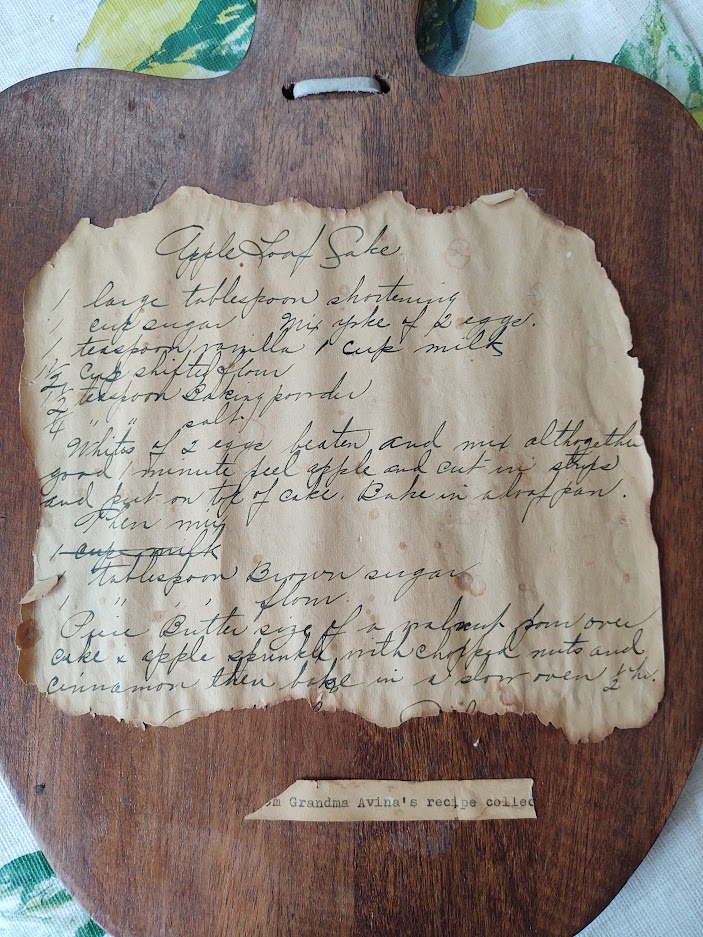 Apple Loaf Cake
1 large tablespoon shortening
1 cup sugar Mix yoke of 2 eggs.
1 teaspoon vanilla 1 cup milk
1 1/2 cup shifted flour
1 1/2 teaspoon Baking powder
1/4 " " salt.
Whites of 2 eggs beaten and mix althogether
good 1 minute peel apple and cut in strips
and put on top of cake. Bake in a loaf pan.
Then mix
1 cup milk
1 tablespoon Brown sugar
1 " " flour.
Piece Butter size of a walnut pour over
cake & apple sprinkle with chopped nuts and
cinnamon then bake in a slow oven 1/2 hr.
om Grandma Avina's recipe collec